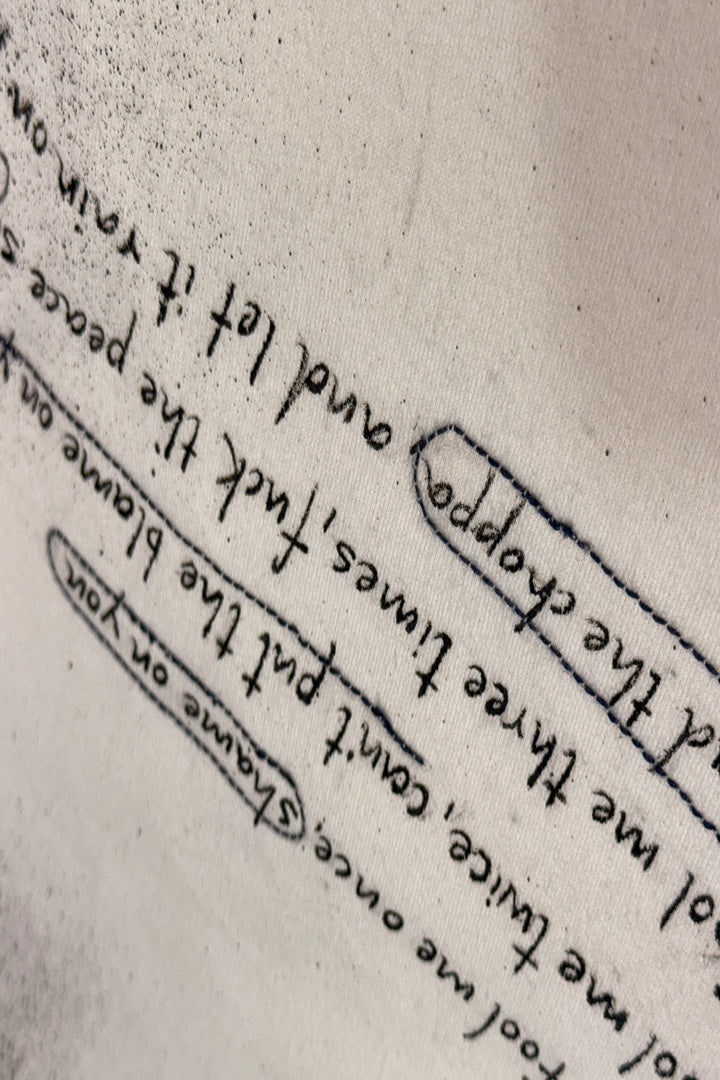 Fool me once, shame on you
ool me twice, can't put the blame on y
ool me three times, fuck the peace s
d the choppa and let it rain on